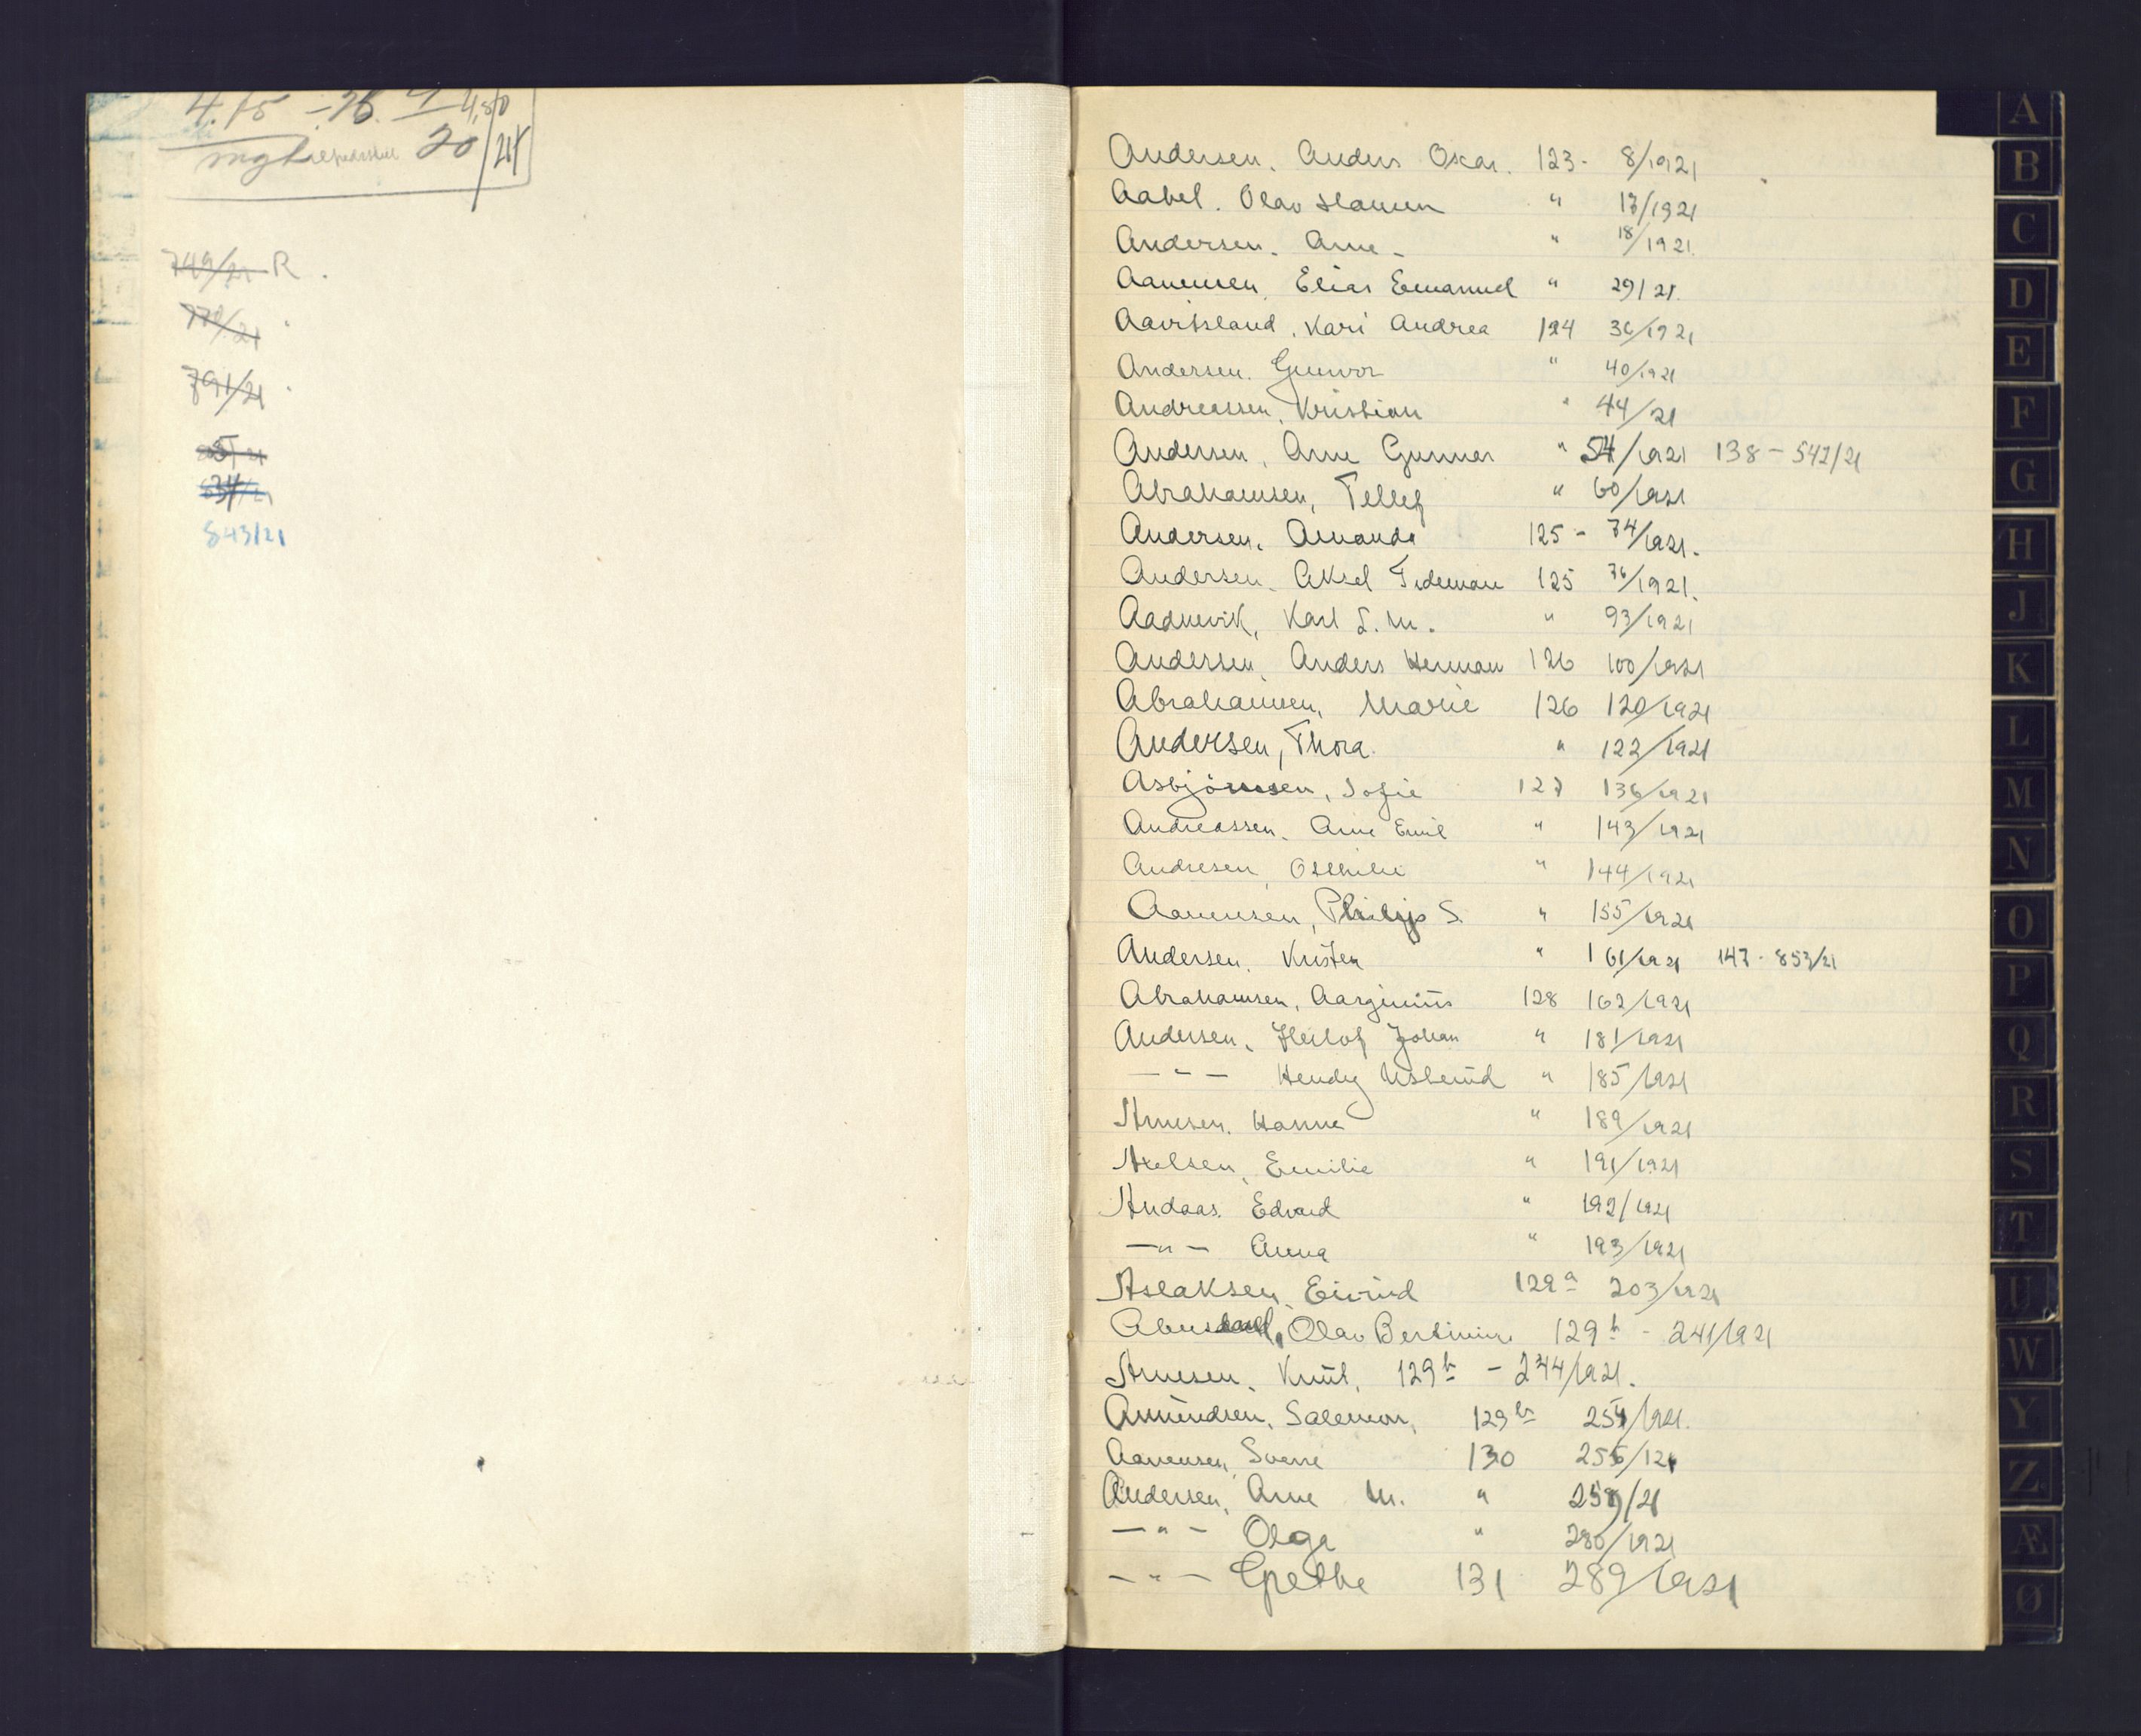 4.15 - 16.
20/21
749/21 R.
778/21
791/21
834/21
843/21
Andersen. Anders Oskar. 123- 8/1921
Aabel. Olav Hansen " 17/1921
Andersen. Arne - " 18/1921.
Aanensen, Elias Emanuel " 29/21.
Aavitsland, Kari Andrea 124 36/1921
Andersen. Gunvor " 40/1921
Andreassen, Kristian " 44/21
Andersen, Arne Gunnar " 54/1921 138 - 542/21
Abrahamsen, Tellef " 60/1921
Andersen, Amanda 125 - 74/1921.
Andersen. Aksel Tideman 125 76/1921.
Aadnevik, Karl S. M. " 93/1921
Andersen, Anders Herman 126 100/1921
Abrahamsen, Marie 126 120/1921
Andersen, Thora. " 122/1921
Asbjörnsen, Sofie 127 136/1921
Andreassen. Arne Emil " 143/1921
Andresen, Othilie " 144/1921
Aanensen, Philip S. " 155/1921
Andersen. Kristen " 161/1921 147 - 853/21
Abrahamsen, 128 162/1921
Andersen, Herlof Johan " 181/1921
— " — Hendy " 185/1921
Arnesen. Hanna " 189/1921
Axelsen, Emilie " 191/1921
Andaas. Edvard " 192/1921
— " — Anna " 193/1921
Aslaksen, Eivind 129a 203/1921
Abusdal, Olav Bertinius 129b - 241/1921
Arnesen, Knut, 129b - 244/1921.
Amundsen, Salemon, 129b 254/1921.
Aanensen, Sverre 130 256/121
Andersen, Arne M. " 259/21
— " — Olga " 280/1921
— " — Grethe 131 289/1921
A
B
C
D
E
F
G
H
J
K
L
M
N
O
P
Q
R
S
T
U
W
Y
Z
Æ
Ø